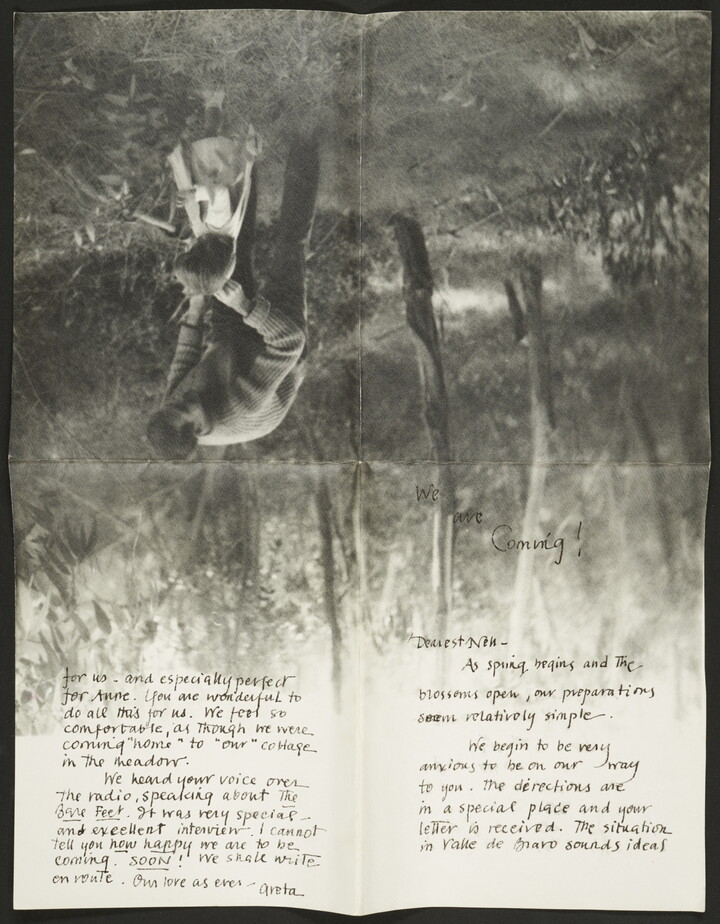 We
are
Coming!
Dearest Nell -
As spring begins and The
blossoms open, our preparations
seem relatively simple.
We begin to be very
anxious to be on our way
to you. The directions are
in a special place and your
letter is received. The situation
in Valle de Bravo sounds ideal
for us - and especially perfect
for Anne. You are wonderful to
do all this for us. We feel so
comfortable, as Though we were
coming "home" to "our" cottage
in The meadow.
We heard your voice over
The radio, speaking about The
Bare Feet. It was very special
and excellent interview. I cannot
tell you how happy we are to be
coming. SOON! We shall write
en route. Our love as ever - Greta